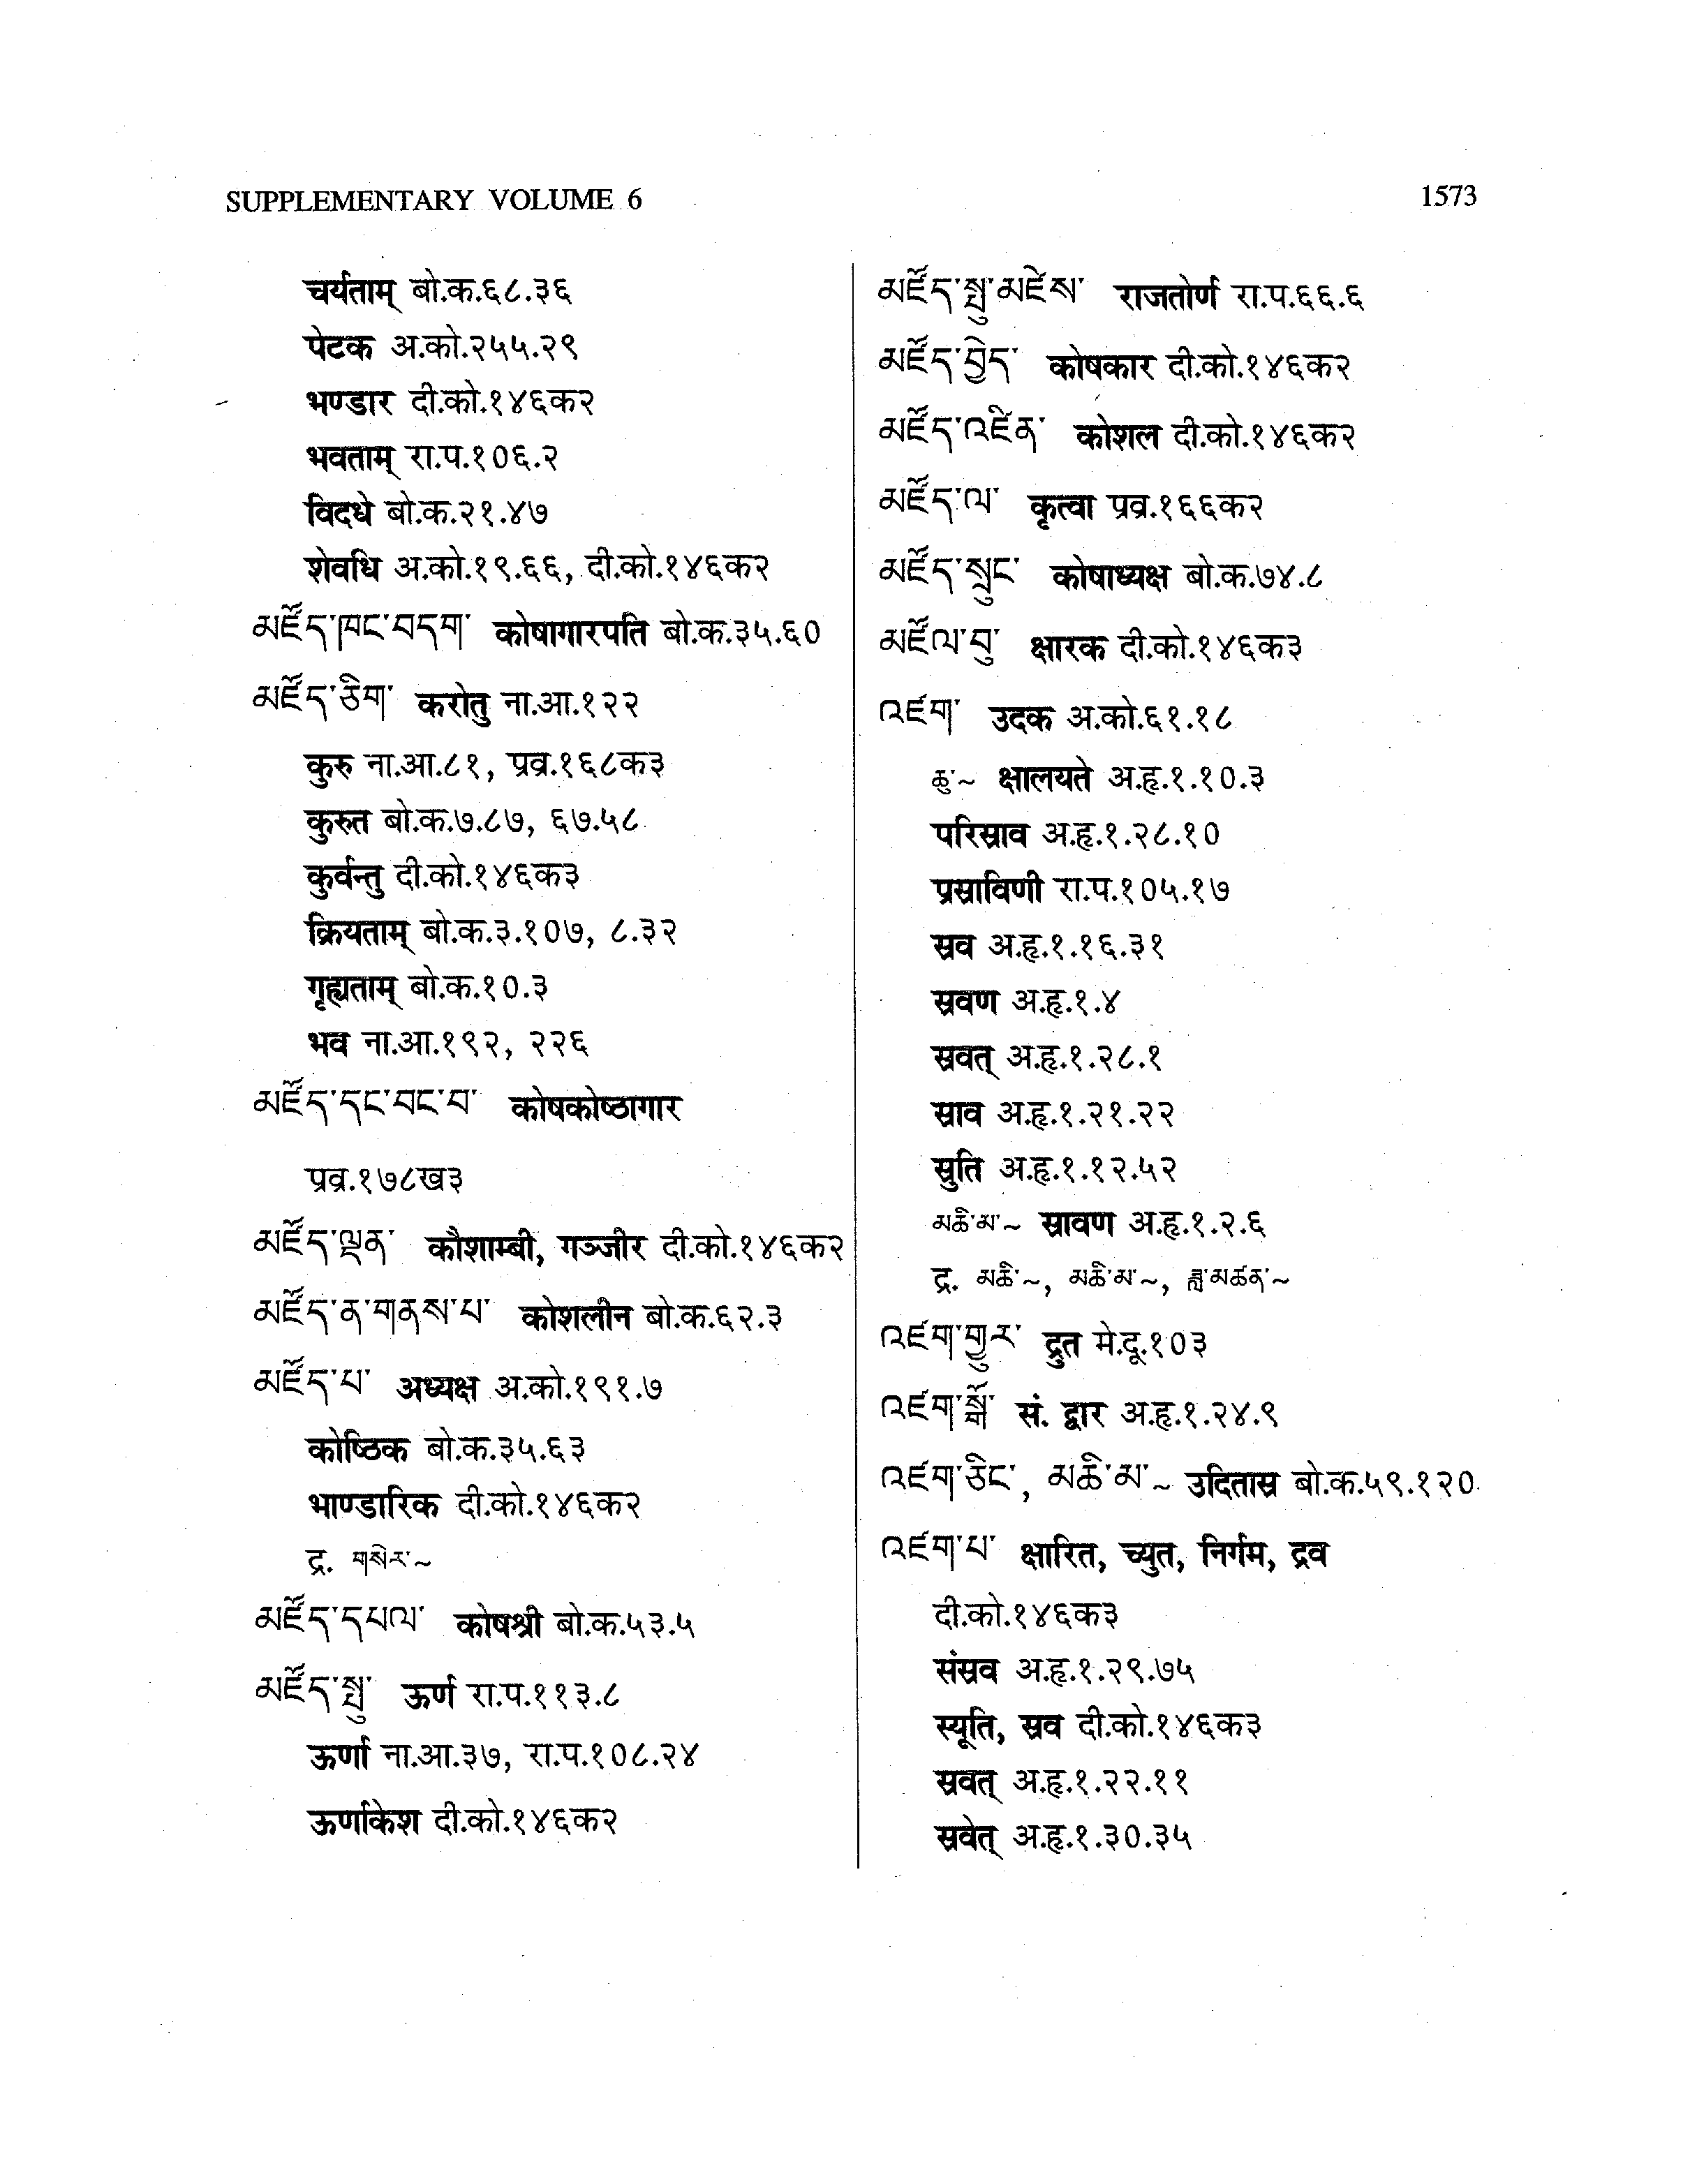 SUPPLEMENTARY VOLUME 6
1573
चर्यताम् बो.क.६८.३६
पेटक अ.को.२५५.२९
भण्डार दी.को.१४६क२
भवताम् रा.प.१०६.२
विदधे बो.क.२१.४७
शेवधि अ.को.१९.६६, दी.को.१४६क२
མཛོད་ཁང་བདག་ कोषागारपति बो.क.३५.६०
མཛོད་ཅིག་ करोतु ना.आ.१२२
कुरु ना.आ.८१, प्रव्र.१६८क३
कुरुत बो.क.७.८७, ६७.५८
कुर्वन्तु दी.को.१४६क३
क्रियताम् बो.क.३.१०७, ८.३२
गृह्यताम् बो.क.१०.३
भव ना.आ.१९२, २२६
མཛོད་དང་བང་བ་ कोषकोष्ठागार
प्रव्र.१७८ख३
མཛོད་ལྡན་ कौशाम्बी, गञ्जीर दी.को.१४६क२
མཛོད་ན་གནས་པ་ कोशलीन बो.क.६२.३
མཛོད་པ་ अध्यक्ष अ.को.१९१.७
कोष्ठिक बो.क.३५.६३
भाण्डारिक दी.को.१४६क२
द्र. གསེར་~
མཛོད་དཔལ་ कोषश्री बो.क.५३.५
མཛོད་སྤུ་ ऊर्ण रा.प.११३.८
ऊर्णा ना.आ.३७, रा.प.१०८.२४
ऊर्णाकेश दी.को.१४६क२
མཛོད་སྤུ་མཛེས་ राजतोर्ण रा.प.६६.६
མཛོད་བྱེད་ कोषकार दी.को.१४६क२
མཛོད་འཛིན་ कोशल दी.को.१४६क२
མཛོད་ལ་ कृत्वा प्रव्र.१६६क२
མཛོད་སྲུང་ कोषाध्यक्ष बो.क.७४.८
མཛོལ་བུ་ क्षारक दी.को.१४६क३
འཛག་ उदक अ.को.६१.१८
ཆུ་~ क्षालयते अ.हृ.१.१०.३
परिस्राव अ.हृ.१.२८.१०
प्रस्राविणी रा.प.१०५.१७
स्रव अ.हृ.१.१६.३१
स्रवण अ.हृ.१.४
स्रवत् अ.हृ.१.२८.१
स्राव अ.हृ.१.२१.२२
स्रुति अ.हृ.१.१२.५२
མཆི་མ་~ स्रावण अ.हृ.१.२.६
द्र. མཆི་~, མཆི་མ་~, ཟླ་མཚན་~
འཛག་གྱུར་ द्रुत मे.दू.१०३
འཛག་སྒོ་ सं. द्वार अ.हृ.१.२४.९
འཛག་ཅིང་, མཆི་མ་~ उदितास्र बो.क.५९.१२०
འཛག་པ་ क्षारित, च्युत, निर्गम, द्रव
दी.को.१४६क३
संस्रव अ.हृ.१.२९.७५
स्यूति, स्रव दी.को.१४६क३
स्रवत् अ.हृ.१.२२.११
स्रवेत् अ.हृ.१.३०.३५